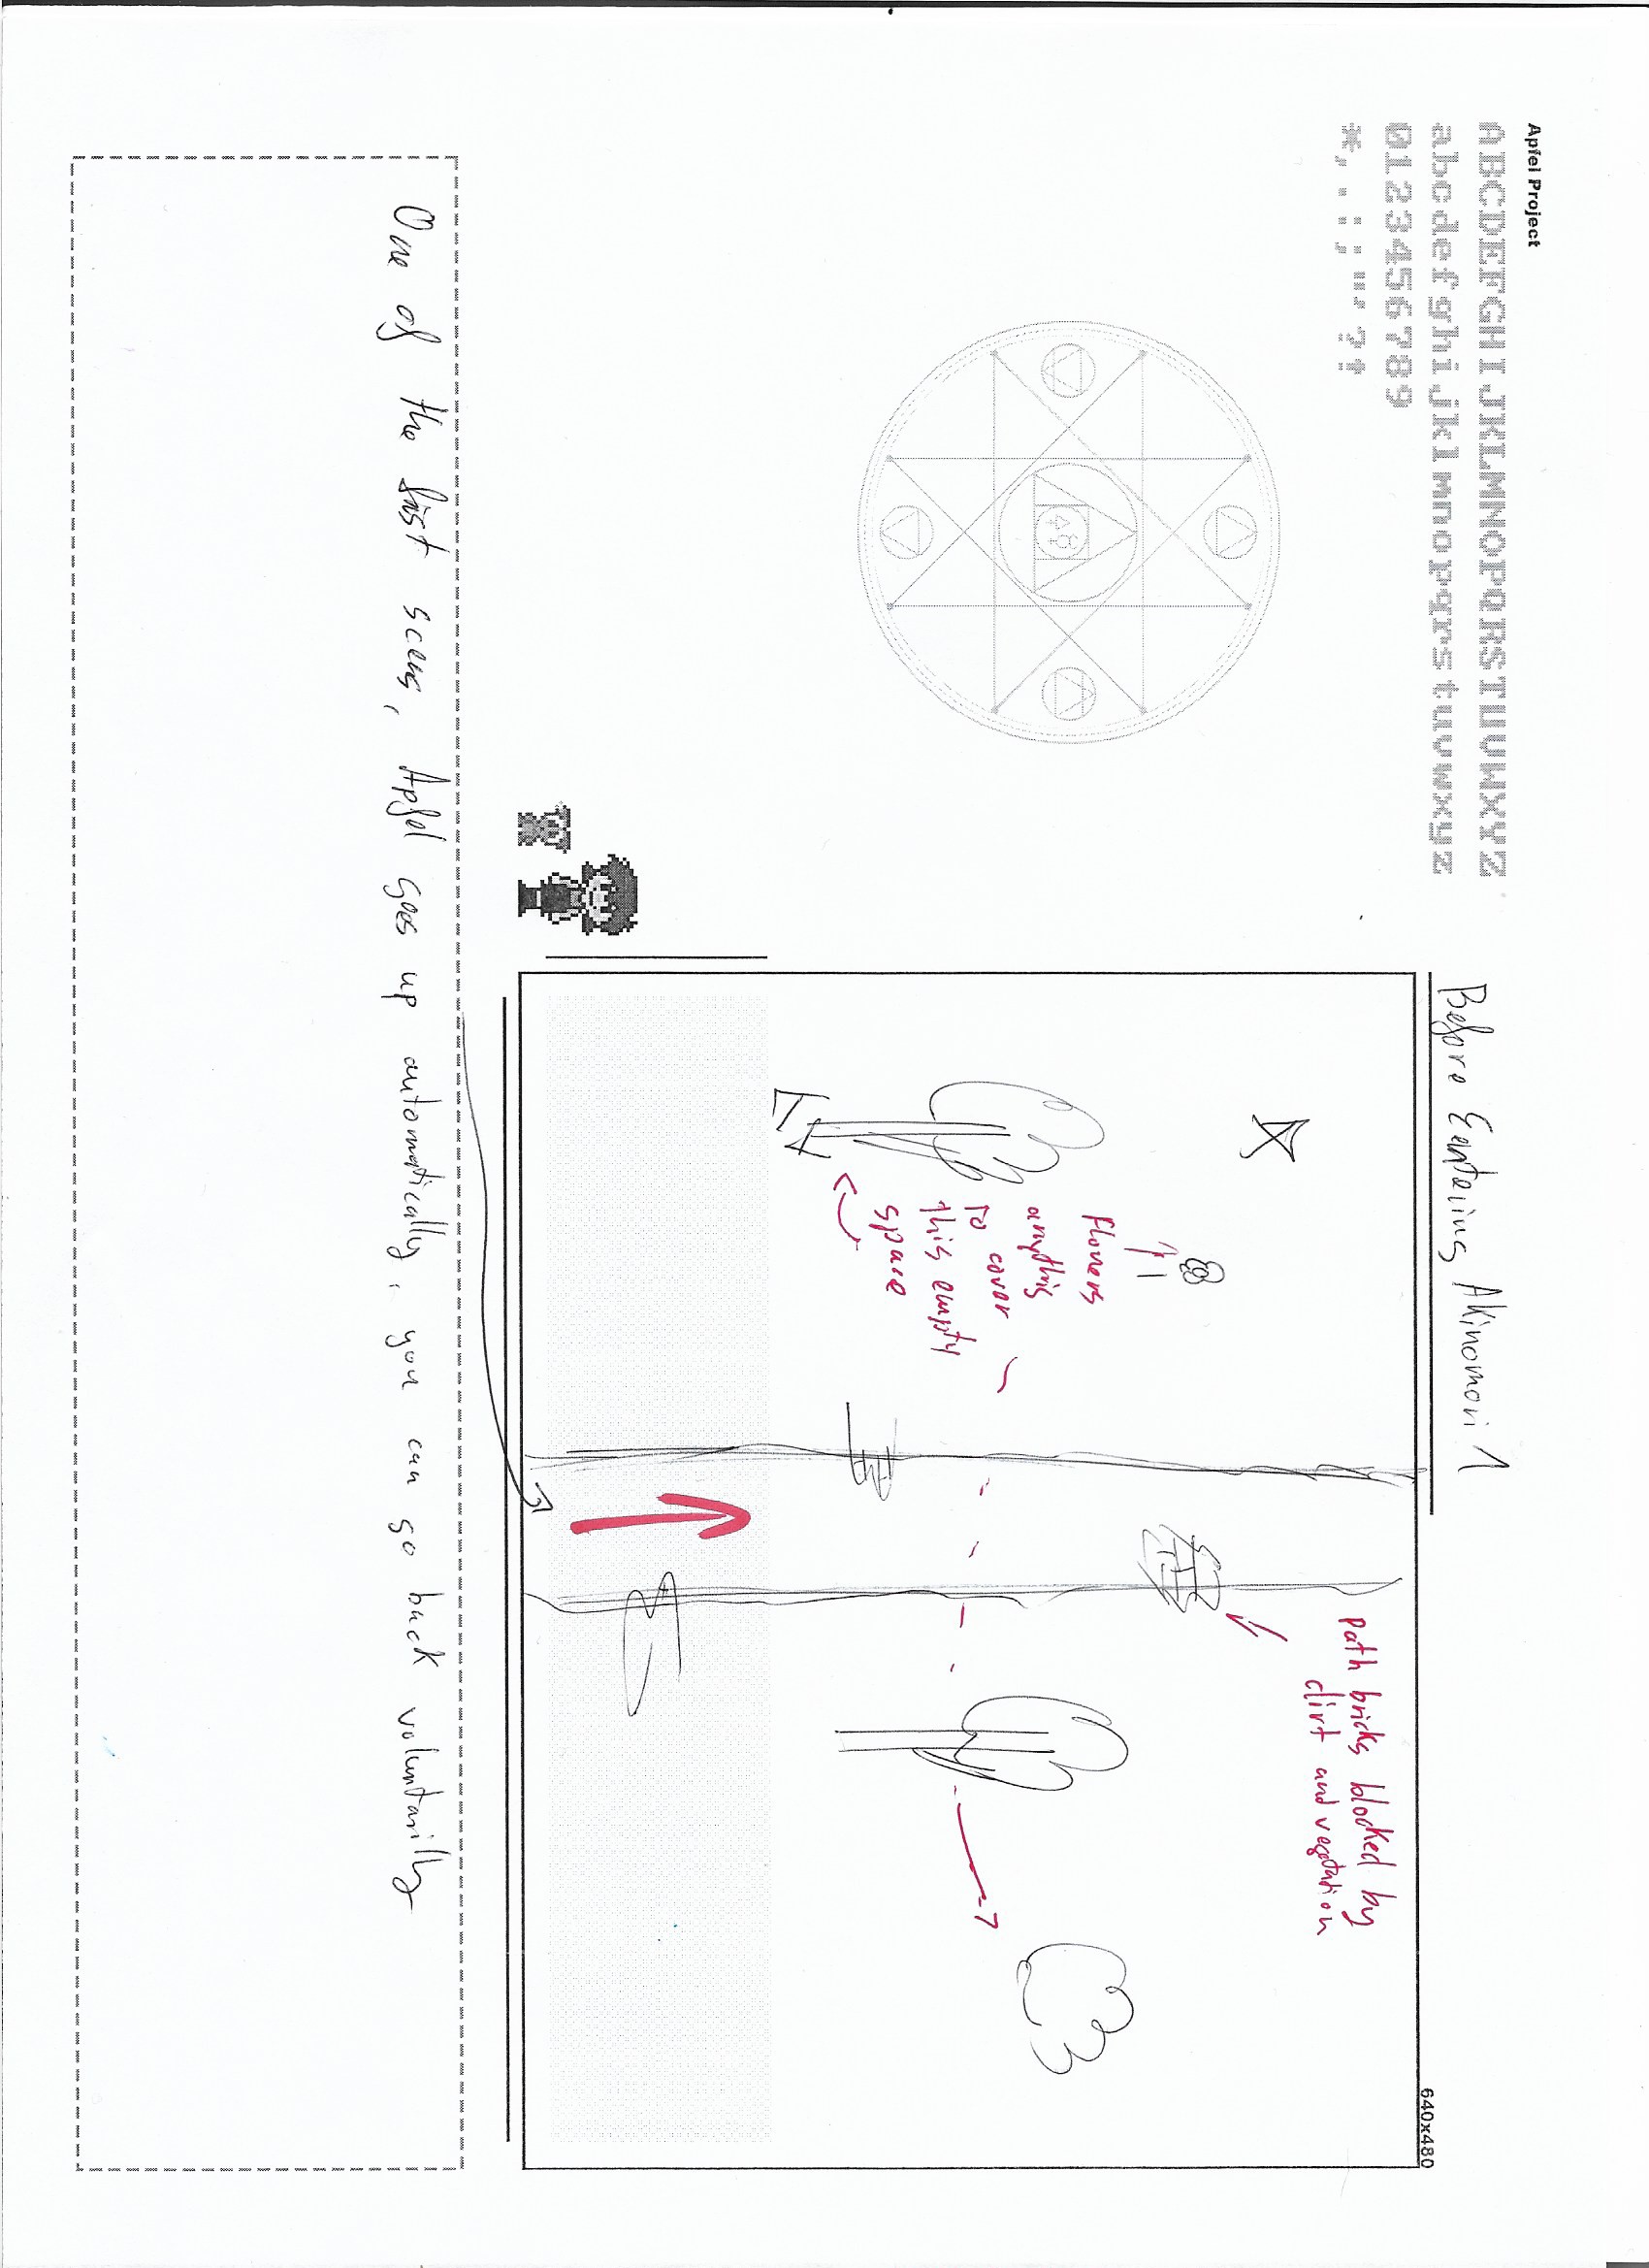 Apfel Project
ABCDEFGHIJKLMNOPQRSTUVWXYZ
abcdefghijklmnopqrstuvwxyz
0123456789
*,.:;"'?!
Before Eentering Akinomori 1
640x480
path bricks blocked by
dirt and vegetation
flowers
anything
to cover
this empty
space
One of the first scens, Apfel goes up automatically, you can go back voluntarilly